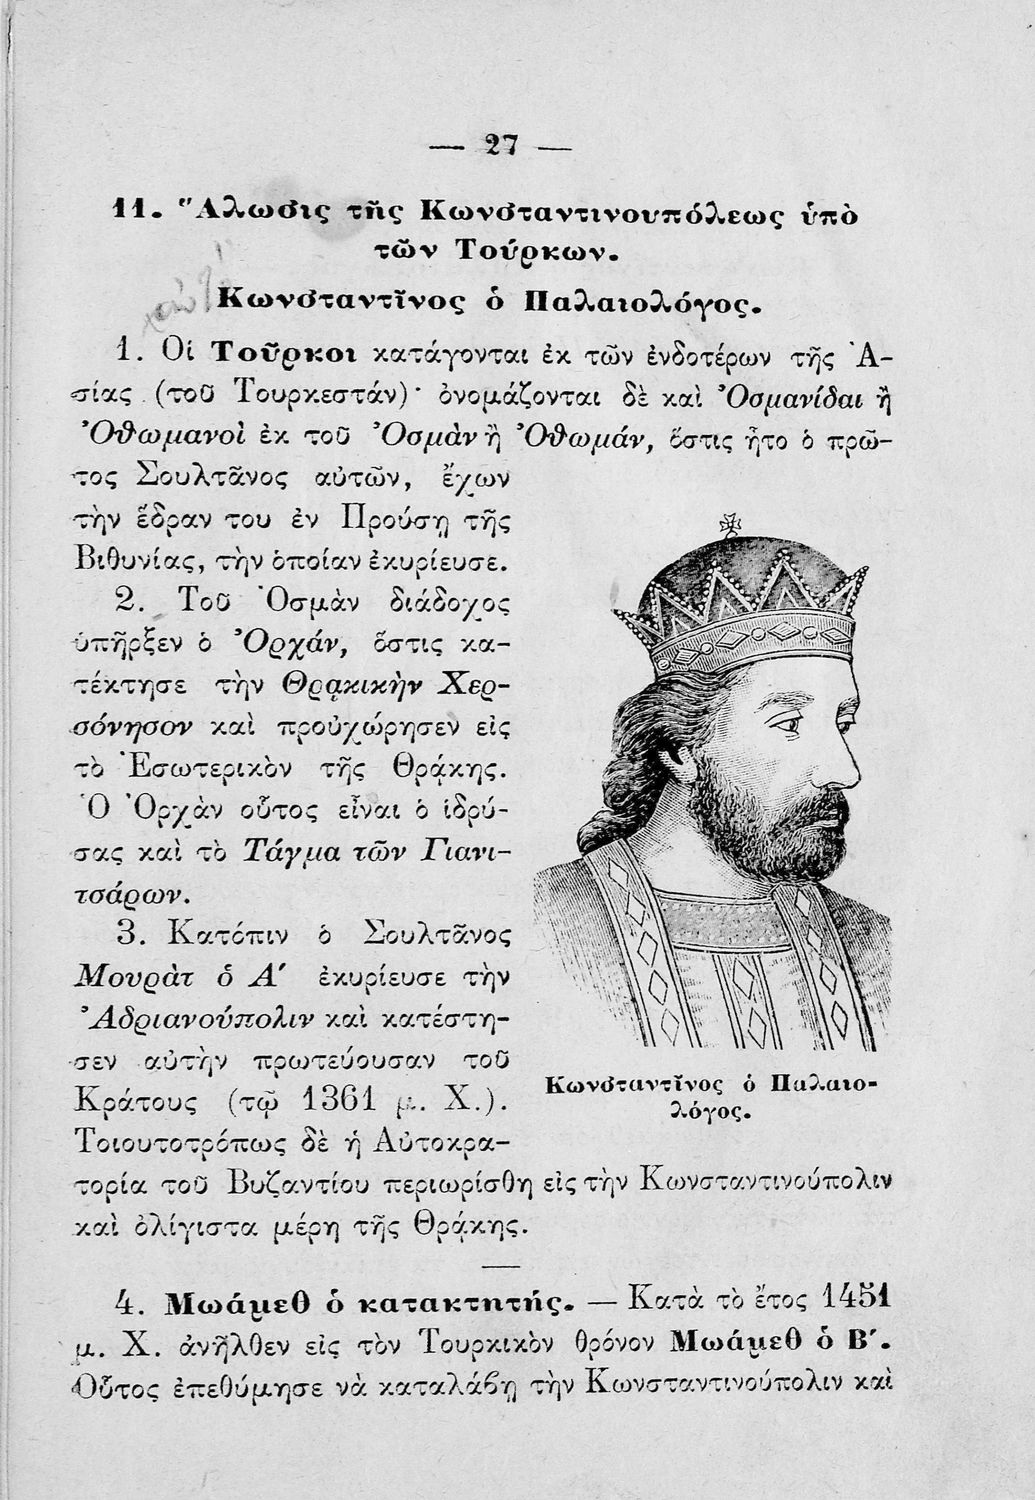 — 27 —
11. Ἅλωσις τῆς Κωνσταντινουπόλεως ὑπὸ
τῶν Τούρκων.
Κωνσταντῖνος ὁ Παλαιολόγος.
1. Οἱ Τοῦρκοι κατάγονται ἐκ τῶν ἐνδοτέρων τῆς Ἀ-
σίας (τοῦ Τουρκεστάν)· ὀνομάζονται δὲ καὶ Ὀσμανίδαι ἢ
Ὀθωμανοὶ ἐκ τοῦ Ὀσμὰν ἢ Ὀθωμάν, ὅστις ἦτο ὁ πρῶ-
τος Σουλτᾶνος αὐτῶν, ἔχων
τὴν ἕδραν του ἐν Προύσῃ τῆς
Βιθυνίας, τὴν ὁποίαν ἐκυρίευσε.
2. Τοῦ Ὀσμὰν διάδοχος
ὑπῆρξεν ὁ Ὀρχάν, ὅστις κα-
τέκτησε τὴν Θρᾳκικὴν Χερ-
σόνησον καὶ προὐχώρησεν εἰς
τὸ Ἐσωτερικὸν τῆς Θρᾴκης.
Ὁ Ὀρχὰν οὗτος εἶναι ὁ ἱδρύ-
σας καὶ τὸ Τάγμα τῶν Γιανι-
τσάρων.
3. Κατόπιν ὁ Σουλτᾶνος
Μουρὰτ ὁ Α′ ἐκυρίευσε τὴν
Ἀδριανούπολιν καὶ κατέστη-
σεν αὐτὴν πρωτεύουσαν τοῦ
Κράτους (τῷ 1361 μ. Χ.).
Τοιουτοτρόπως δὲ ἡ Αὐτοκρα-
τορία τοῦ Βυζαντίου περιωρίσθη εἰς τὴν Κωνσταντινούπολιν
καὶ ὀλίγιστα μέρη τῆς Θρᾴκης.
Κωνσταντῖνος ὁ Παλαιο-
λόγος.
4. Μωάμεθ ὁ κατακτητής. — Κατὰ τὸ ἔτος 1451
μ. Χ. ἀνῆλθεν εἰς τὸν Τουρκικὸν θρόνον Μωάμεθ ὁ Β′.
Οὗτος ἐπεθύμησε νὰ καταλάβῃ τὴν Κωνσταντινούπολιν καὶ